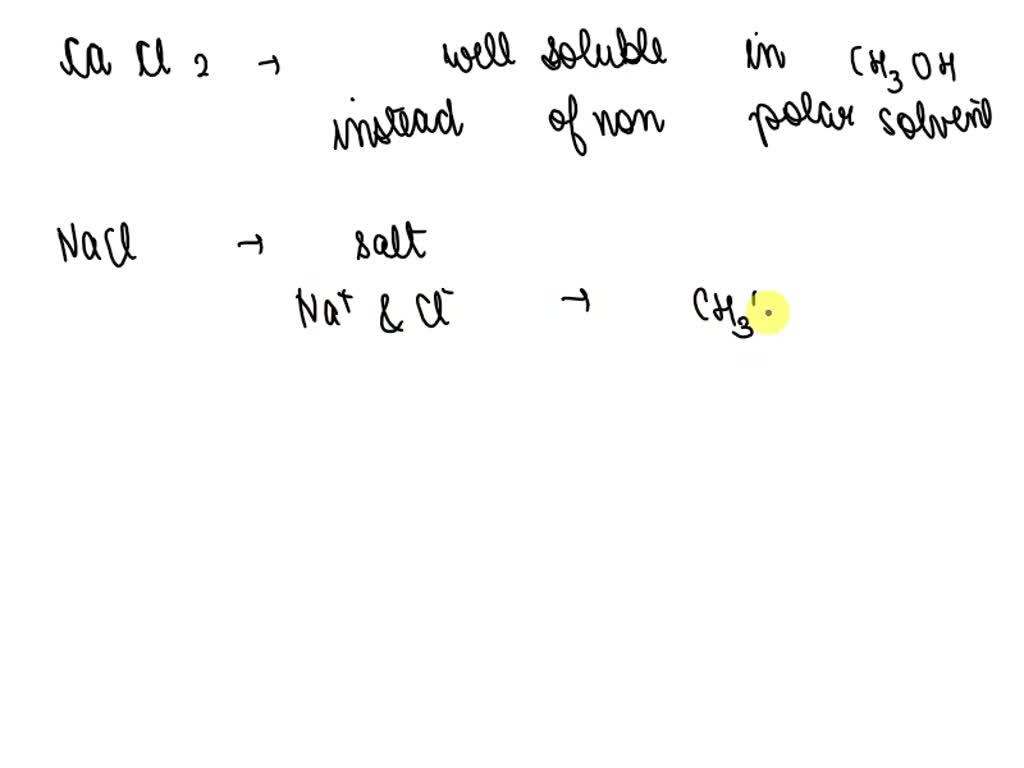 CaCl2 → well soluble in CH3OH
instead of non polar solvent
NaCl → salt
Na+ & Cl- → CH3